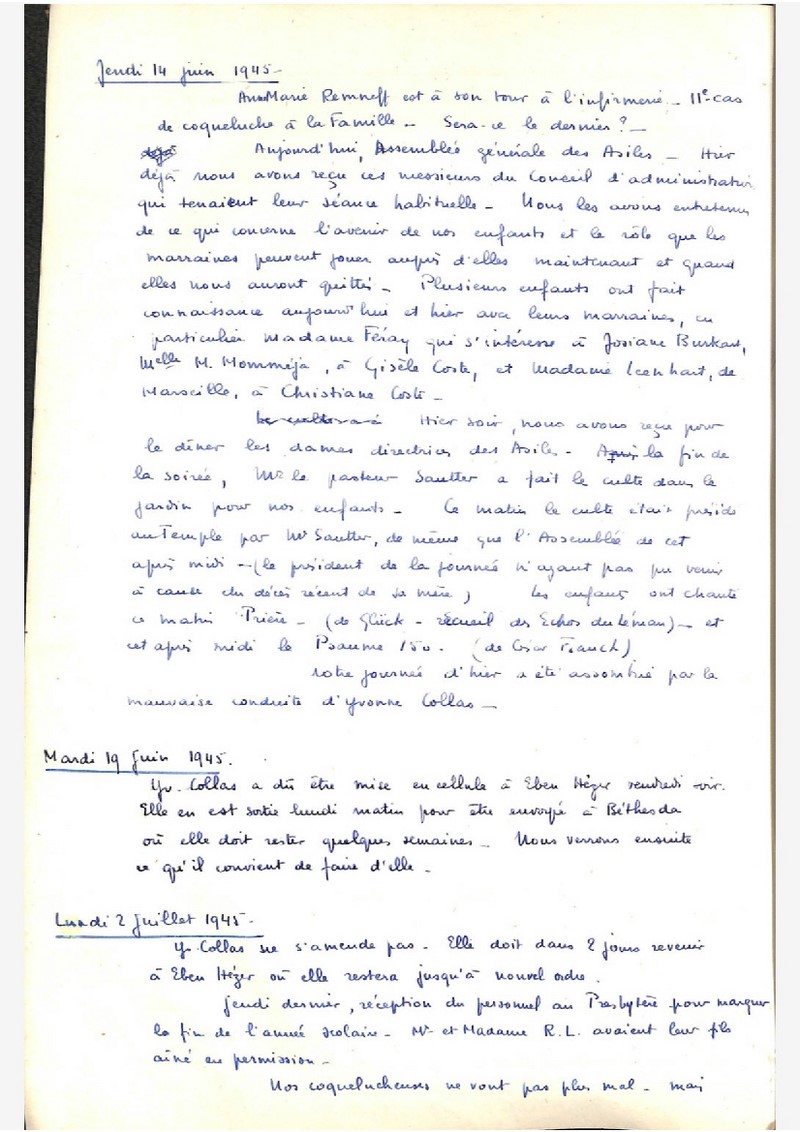 Jeudi 14 juin 1945 -
AnneMarie Remneff est à son tour à l'infirmerie - 11e cas
de coqueluche à la Famille - Sera-ce le dernier ? -
Aujourd'hui, Assemblée générale des Asiles - Hier
déjà nous avons reçu ces messieurs du Conseil d'administration
qui tenaient leur séance habituelle - Nous les avons entretenus
de ce qui concerne l'avenir de nos enfants et le rôle que les
marraines peuvent jouer auprès d'elles maintenant et quand
elles nous auront quittés - Plusieurs enfants ont fait
connaissance aujourd'hui et hier avec leurs marraines, en
particulier Madame Féray qui s'intéresse à Josiane Burkart,
Melle M. Momméja, à Gisèle Coste, et Madame Leenhart, de
Marseille, à Christiane Coste -
Hier soir, nous avons reçu pour
le dîner les dames directrices des Asiles - A la fin de
la soirée, Mr le pasteur Sautter a fait le culte dans le
jardin pour nos enfants - Ce matin le culte était présidé
au Temple par Mr Sautter, de même que l'Assemblée de cet
après midi - (le président de la journée n'ayant pas pu venir
à cause du décès récent de sa mère) Les enfants ont chanté
ce matin Prière - (de Glück - recueil des Echos du Léman) - et
cet après midi le Psaume 150. (de César Franck)
Notre journée d'hier a été assombrie par la
mauvaise conduite d'Yvonne Collas -
Mardi 19 Juin 1945.
Yv. Collas a dû être mise en cellule à Eben Hézer vendredi soir.
Elle en est sortie lundi matin pour être envoyé à Béthesda
où elle doit rester quelques semaines - Nous verrons ensuite
ce qu'il convient de faire d'elle -
Lundi 2 Juillet 1945 -
Y. Collas ne s'amende pas - Elle doit dans 2 jours revenir
à Eben Hézer où elle restera jusqu'à nouvel ordre.
Jeudi dernier, réception du personnel au Presbytère pour marquer
la fin de l'année scolaire - Mr et Madame R.L. avaient leur fils
aîné en permission -
Nos coquelucheuses ne vont pas plus mal - mais